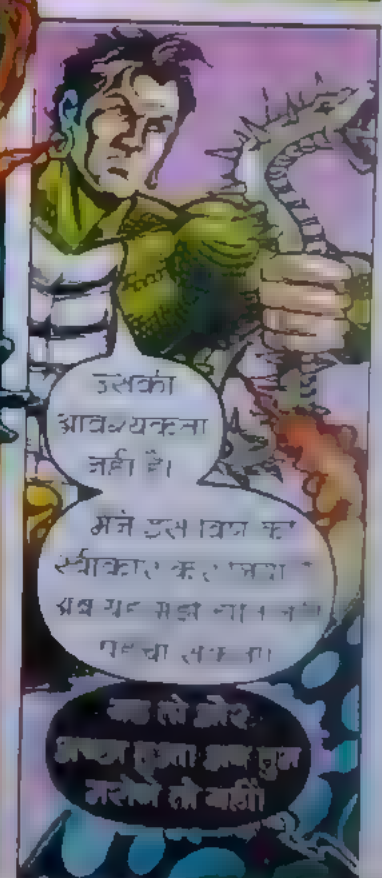 उसकी
आवश्यकता
नहीं है।
मैंने इस विष को
स्वीकार कर लिया है
अब यह मुझे
पहुंचा सकता।
यह तो और
अच्छा हुआ। अब तुम
मरोगे तो नहीं।